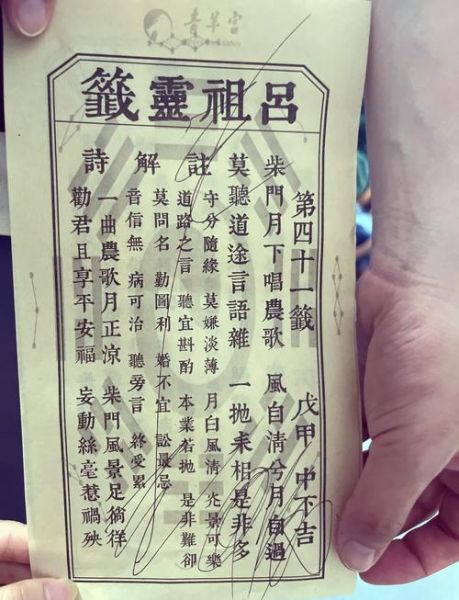 青羊宮
呂祖靈籤
第四十一籤 戊甲 中下吉
柴門月下唱農歌 風自清兮月自過
莫聽道途言語雜 一拋耒相是非多
註
守分隨緣 莫嫌淡薄 月白風清 光景可樂
道路之言 聽宜斟酌 本業若拋 是非難卻
解
莫問名 勤圖利 婚不宜 訟最忌
音信無 病可治 聽旁言 終受累
詩
一曲農歌月正涼 柴門風景足徜徉
勸君且享平安福 妄動絲毫惹禍殃